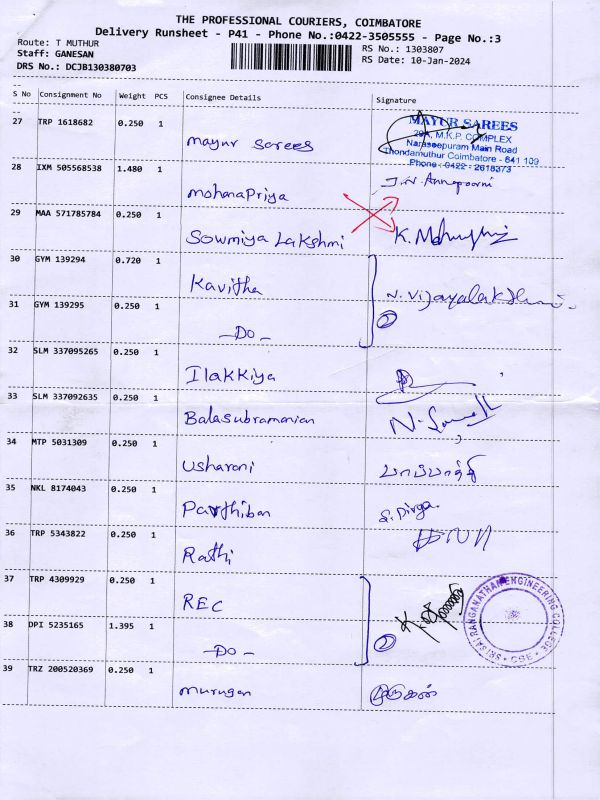 THE PROFESSIONAL COURIERS, COIMBATORE
Delivery Runsheet - P41 - Phone No.:0422-3505555 - Page No.:3
Route: T MUTHUR
RS No.: 1303807
Staff: GANESAN
RS Date: 10-Jan-2024
DRS No.: DCJB130380703
S No Consignment No Weight PCS Consignee Details Signature
27 TRP 1618682 0.250 1 mayur sarees
MAYUR SAREES
29A, M.K.P. COMPLEX
Naraseepuram Main Road
Thondamuthur Coimbatore - 641 109
Phone : 0422 - 2618373
28 IXM 505568538 1.480 1 mohanaPriya J.N. Annapoorni
29 MAA 571785784 0.250 1 Sowmiya Lakshmi K.
30 GYM 139294 0.720 1 Kavitha N. Vijayalakshmi
31 GYM 139295 0.250 1 -Do- 2
32 SLM 337095265 0.250 1 Ilakkiya
33 SLM 337092635 0.250 1 Balasubramanian N.
34 MTP 5031309 0.250 1 Usharani பாப்பாத்தி
35 NKL 8174043 0.250 1 Parthiban S. Dirga
36 TRP 5343822 0.250 1 Rathi
37 TRP 4309929 0.250 1 REC
38 DPI 5235165 1.395 1 -Do- 2
SRI SAI RANGANATHAN ENGINEERING COLLEGE
CSE
39 TRZ 200520369 0.250 1 murugan முருகன்